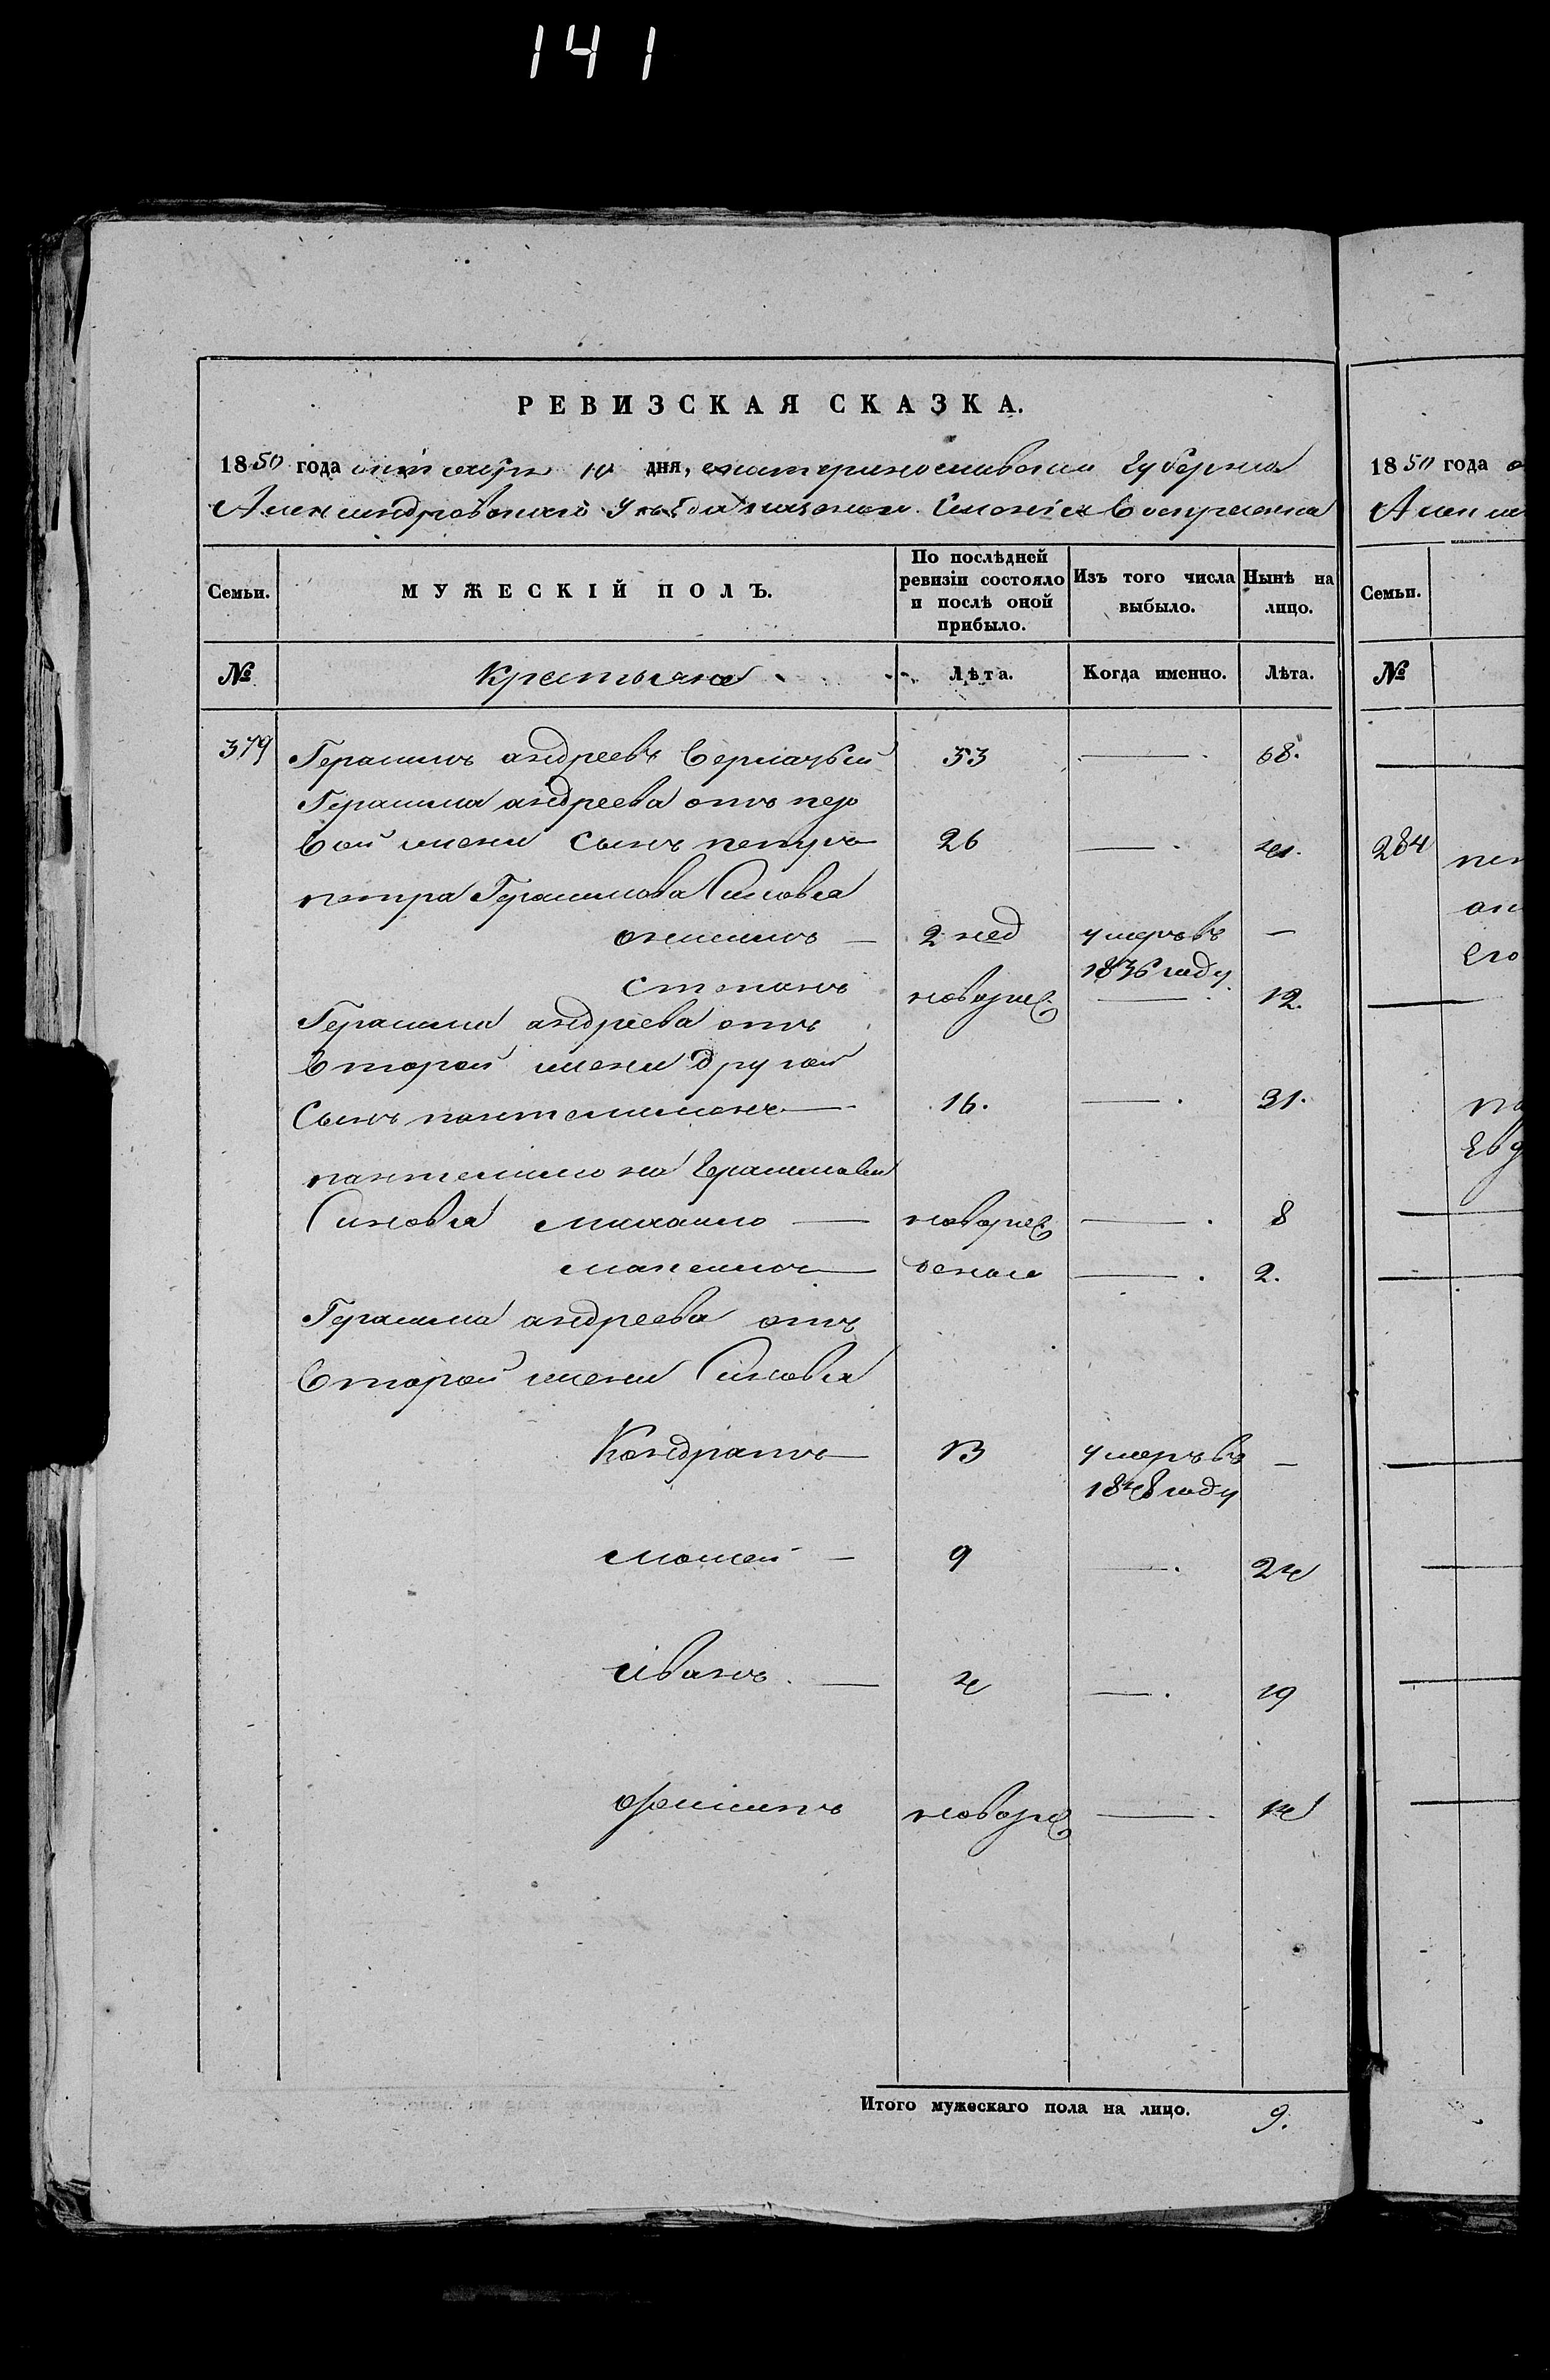 141
РЕВИЗСКАЯ СКАЗКА.
1850 года октября 10 дня, екатеринославской Губернiи
Александровскаго уѣзда казенной Слободы Воскресенки
Семьи. МУЖЕСКІЙ ПОЛЪ. По послѣдней ревизіи состояло и послѣ оной прибыло. Изъ того числа выбыло. Нынѣ на лицо.
№ Крестьяне Лѣта. Когда именно. Лѣта.
379 Герасимъ андреевъ 53 — 68.
Герасима андреева отъ пер
вой жени сынъ петръ 26 — 41.
петра Герасимова Синовья
онисимъ — 2 нед умеръ въ 1836 году —
степанъ новорж — 12.
Герасима андреева отъ
второй жени другой
Сынъ пантелимонъ — 16. — 31.
пантелимона Герасимова
Синовья михаило — новорж — 8
максимъ — 2.
Герасима андреева отъ
второй жени Синовья
Кондратъ — 13 умеръ въ 1848 году —
мосей — 9 — 24
иванъ. — 4 — 19
новорж — 14
Итого мужескаго пола на лицо. 9.
1850 года
Семьи.
№
284
его